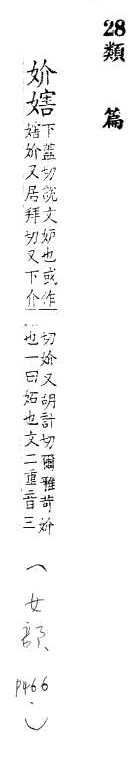 28 類 篇
妎
下蓋切說文妒也或作
妎又居拜切又下介
切妎又胡計切爾雅苛妎
也一曰妬也文二重音三
(女部、P466.)